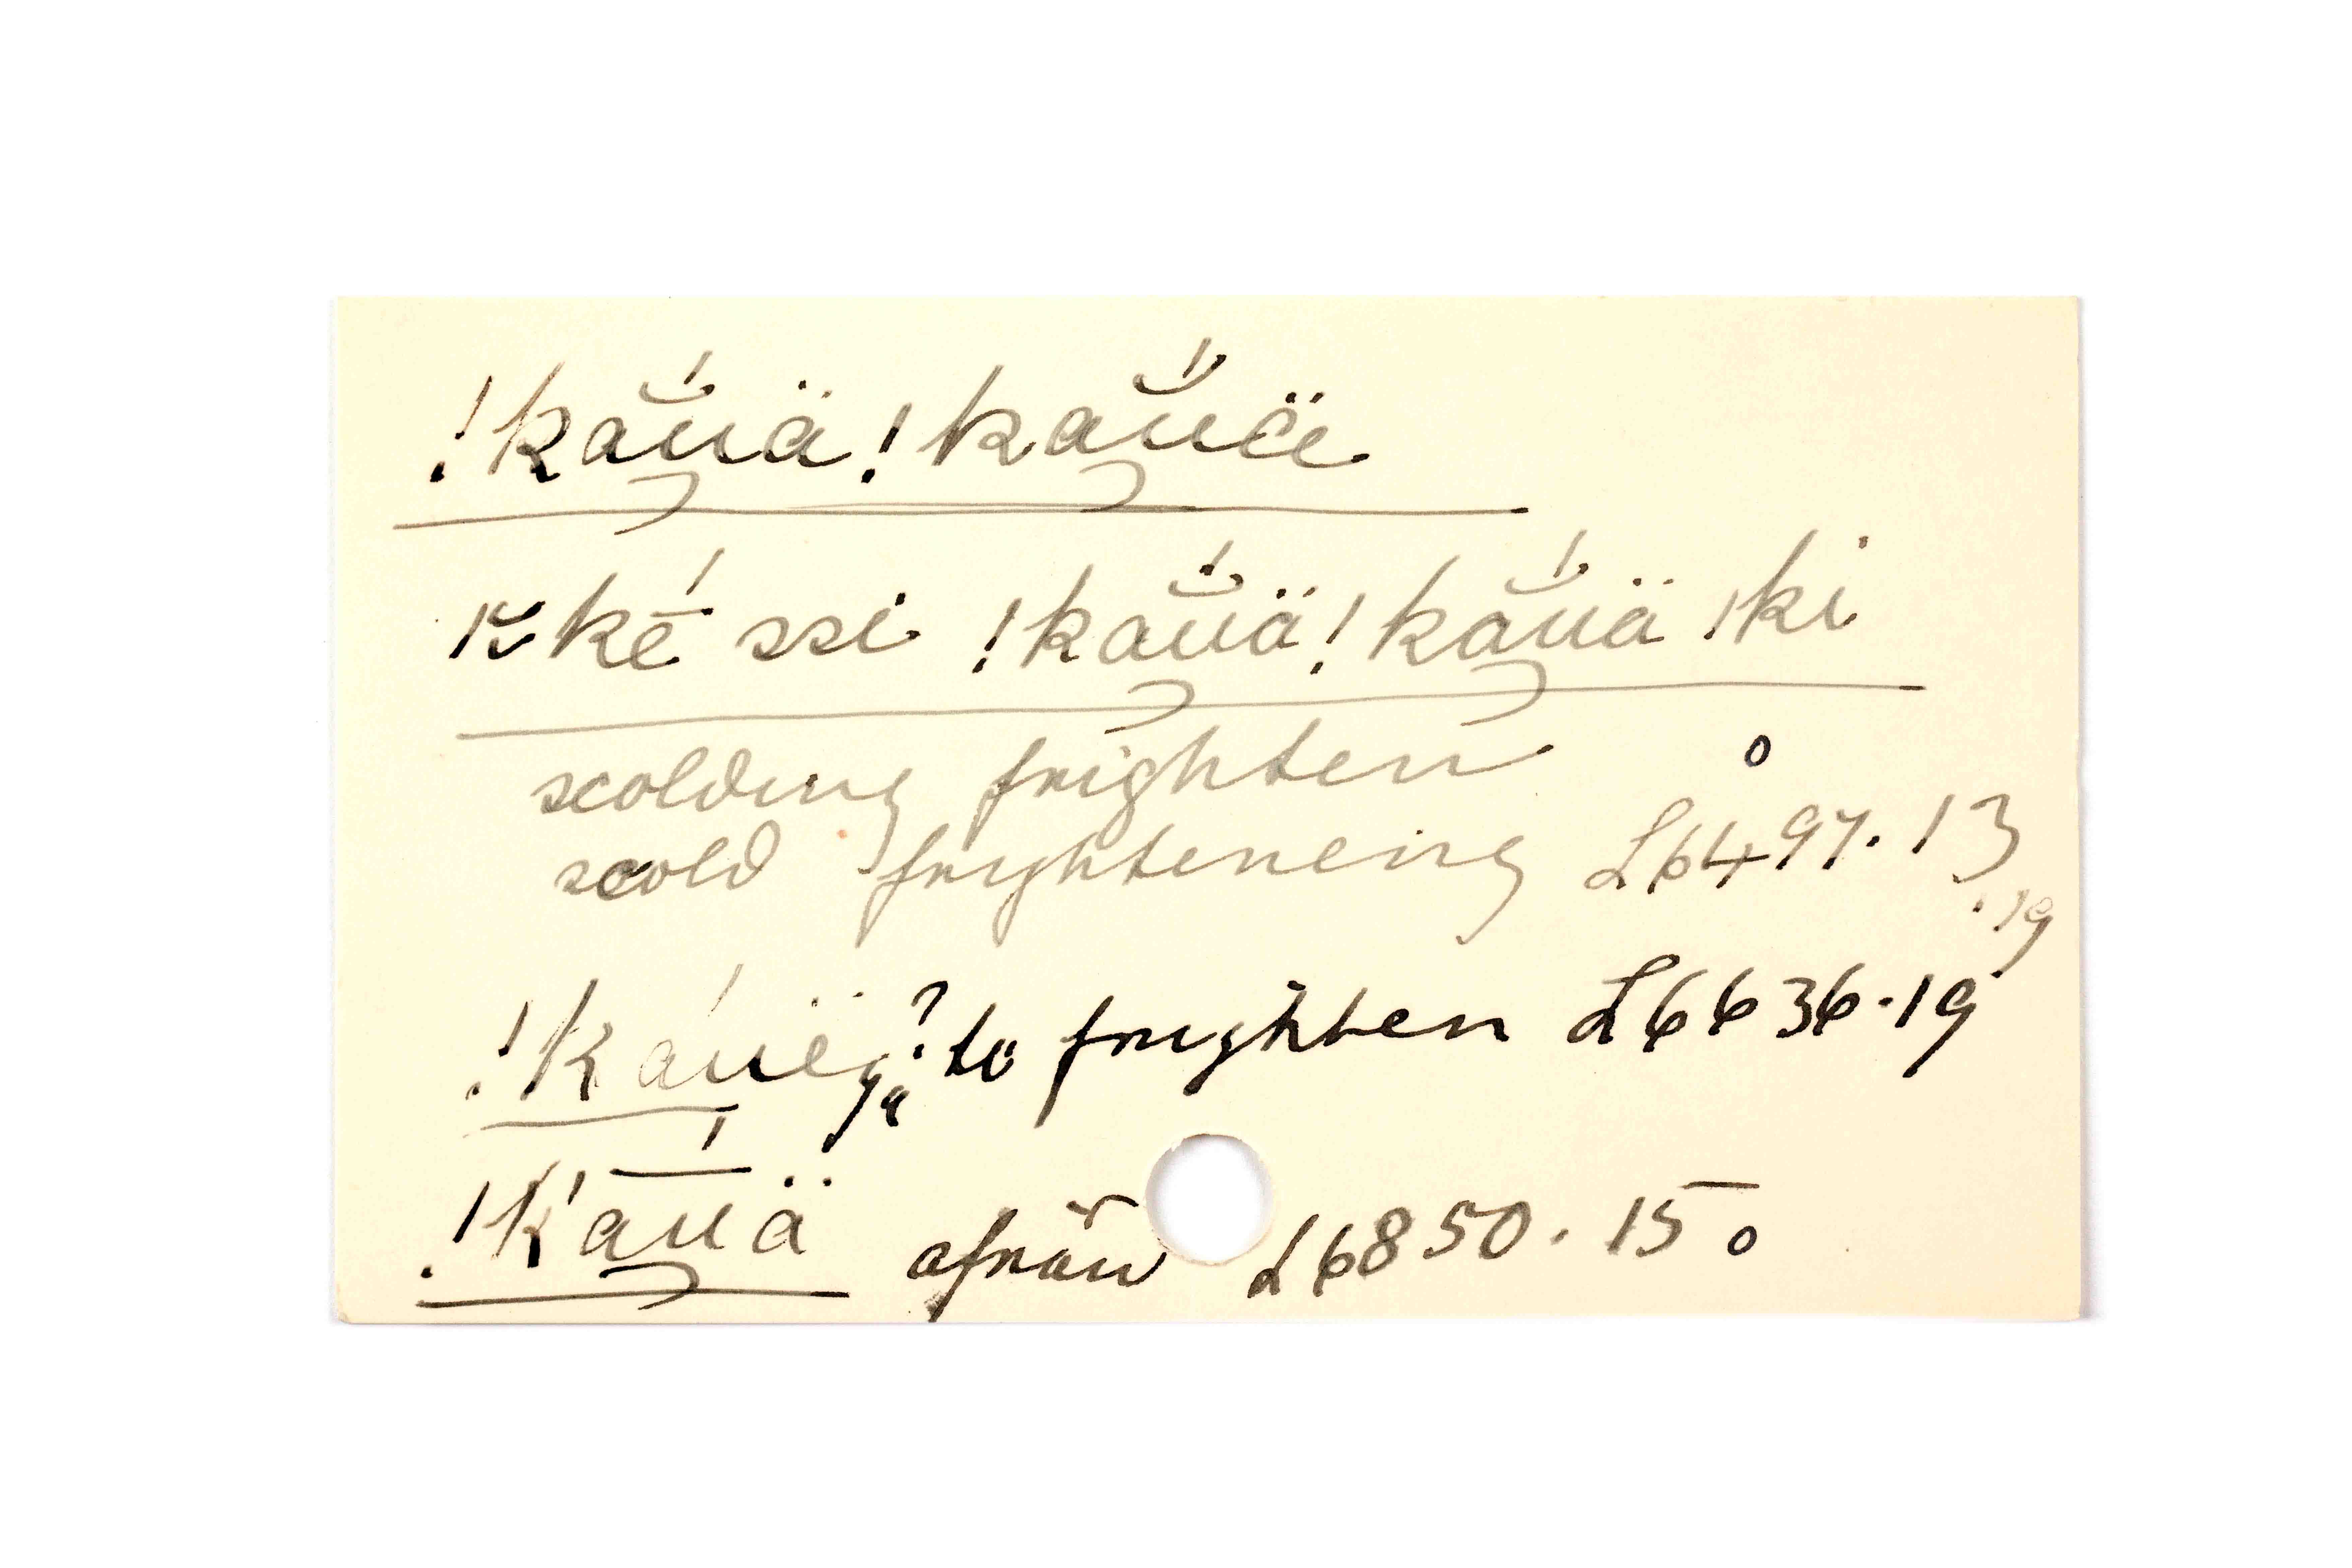 !kắṵä!kắṵë
ḱē ssi !kắṵä!kắṵä !ki
scolding frighten o
scold frighteneing L6497.13
.19
!káuë ? to frighten L6636.19
yä
!k'ā́ṵä afraid L6850.15 o